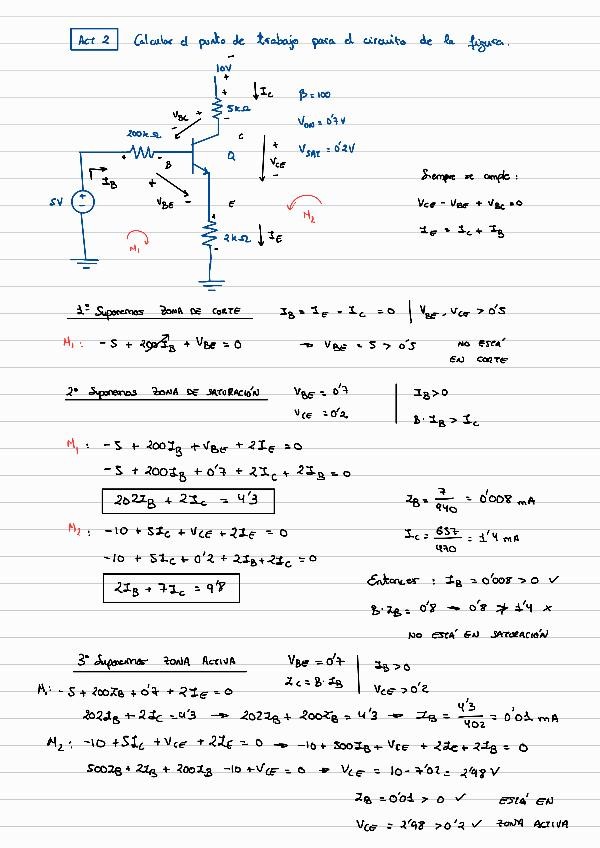 Act 2 Calcular el punto de trabajo para el circuito de la figura.
10V
+
+ ↓ I_C β = 100
5kΩ
- V_ON = 0'7V
V_BC +
200kΩ - C + V_SAT = 0'2V
+ - B Q V_CE
I_B + - Siempre se cumple:
V_BE - E V_CE - V_BE + V_BC = 0
5V + - + M_2 I_E = I_C + I_B
M_1 2kΩ ↓ I_E
-
1º Suponemos ZONA DE CORTE I_B = I_E = I_C = 0 | V_BE, V_CE > 0'5
M_1: -5 + 200I_B + V_BE = 0 → V_BE = 5 > 0'5 NO ESTÁ
EN CORTE
2º Suponemos ZONA DE SATURACIÓN V_BE = 0'7 | I_B > 0
V_CE = 0'2 | β·I_B > I_C
M_1: -5 + 200I_B + V_BE + 2I_E = 0
-5 + 200I_B + 0'7 + 2I_C + 2I_B = 0
202I_B + 2I_C = 4'3 I_B = 7/940 = 0'008 mA
M_2: -10 + 5I_C + V_CE + 2I_E = 0 I_C = 657/470 = 1'4 mA
-10 + 5I_C + 0'2 + 2I_B + 2I_C = 0
2I_B + 7I_C = 9'8 Entonces: I_B = 0'008 > 0 ✓
β·I_B = 0'8 → 0'8 ≯ 1'4 ×
NO ESTÁ EN SATURACIÓN
3º Suponemos ZONA ACTIVA V_BE = 0'7 | I_B > 0
I_C = β·I_B | V_CE > 0'2
M_1: -5 + 200I_B + 0'7 + 2I_E = 0
202I_B + 2I_C = 4'3 → 202I_B + 200I_B = 4'3 → I_B = 4'3/402 = 0'01 mA
M_2: -10 + 5I_C + V_CE + 2I_E = 0 → -10 + 500I_B + V_CE + 2I_C + 2I_B = 0
500I_B + 2I_B + 200I_B - 10 + V_CE = 0 → V_CE = 10 - 7'02 = 2'98 V
I_B = 0'01 > 0 ✓ ESTÁ EN
V_CE = 2'98 > 0'2 ✓ ZONA ACTIVA